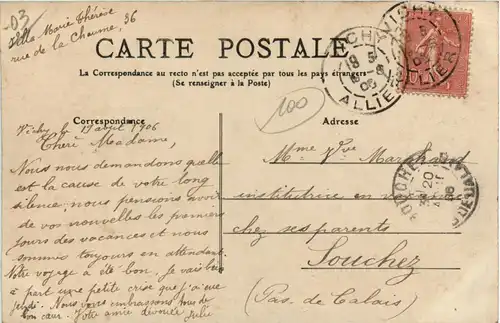 -03
Villa Marie Thérèse
rue de la Chaume, 36
CARTE POSTALE
La Correspondance au recto n'est pas acceptée par tous les pays étrangers
(Se renseigner à la Poste)
100
Correspondance
Vichy le 19 août 1906
Chère Madame,
Nous nous demandons quelle
est la cause de votre long
silence, nous pensions avoir
de vos nouvelles les premiers
jours des vacances et nous
sommes toujours en attendant.
Notre voyage a été bon. Je vais bien
à part une petite crise que j'ai eue
jeudi. Nous vous embrassons tous de
bon cœur. Votre amie dévouée Julie
Adresse
Mme Vve Marchand
institutrice en
chez ses parents
Souchez
(Pas de Calais)
VICHY
ALLIER
VICHY
ALLIER
SOUCHEZ
PAS DE CALAIS
20
06